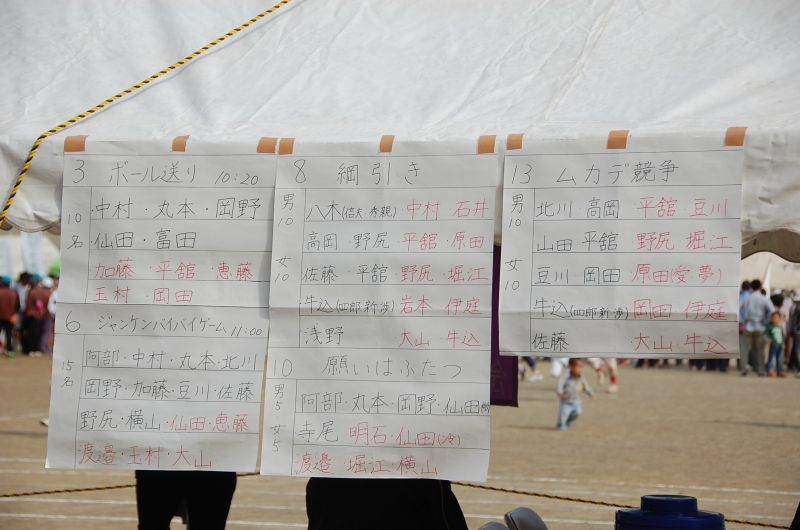 3 ボール送り 10:20
10名
中村・丸本・岡野
仙田・富田
加藤・平舘・恵藤
玉村・岡田
6 ジャンケンバイバイゲーム 11:00
15名
阿部・中村・丸本・北川
岡野・加藤・豆川・佐藤
野尻・横山・仙田・恵藤
渡邉・玉村・大山
8 綱引き
男10
女10
八木(信夫・秀親) 中村 石井
高岡・野尻・平舘・原田
佐藤・平舘・野尻・堀江
牛込(四郎 新渉) 岩本・伊庭
浅野 大山・牛込
10 願いはふたつ
男5
女5
阿部・丸本・岡野・仙田
寺尾 明石・仙田
渡邉 堀江・横山
13 ムカデ競争
男10
女10
北川 高岡 平舘 豆川
山田 平舘 野尻 堀江
豆川・岡田 原田(愛 夢)
牛込(四郎 新渉) 岡田・伊庭
佐藤 大山・牛込